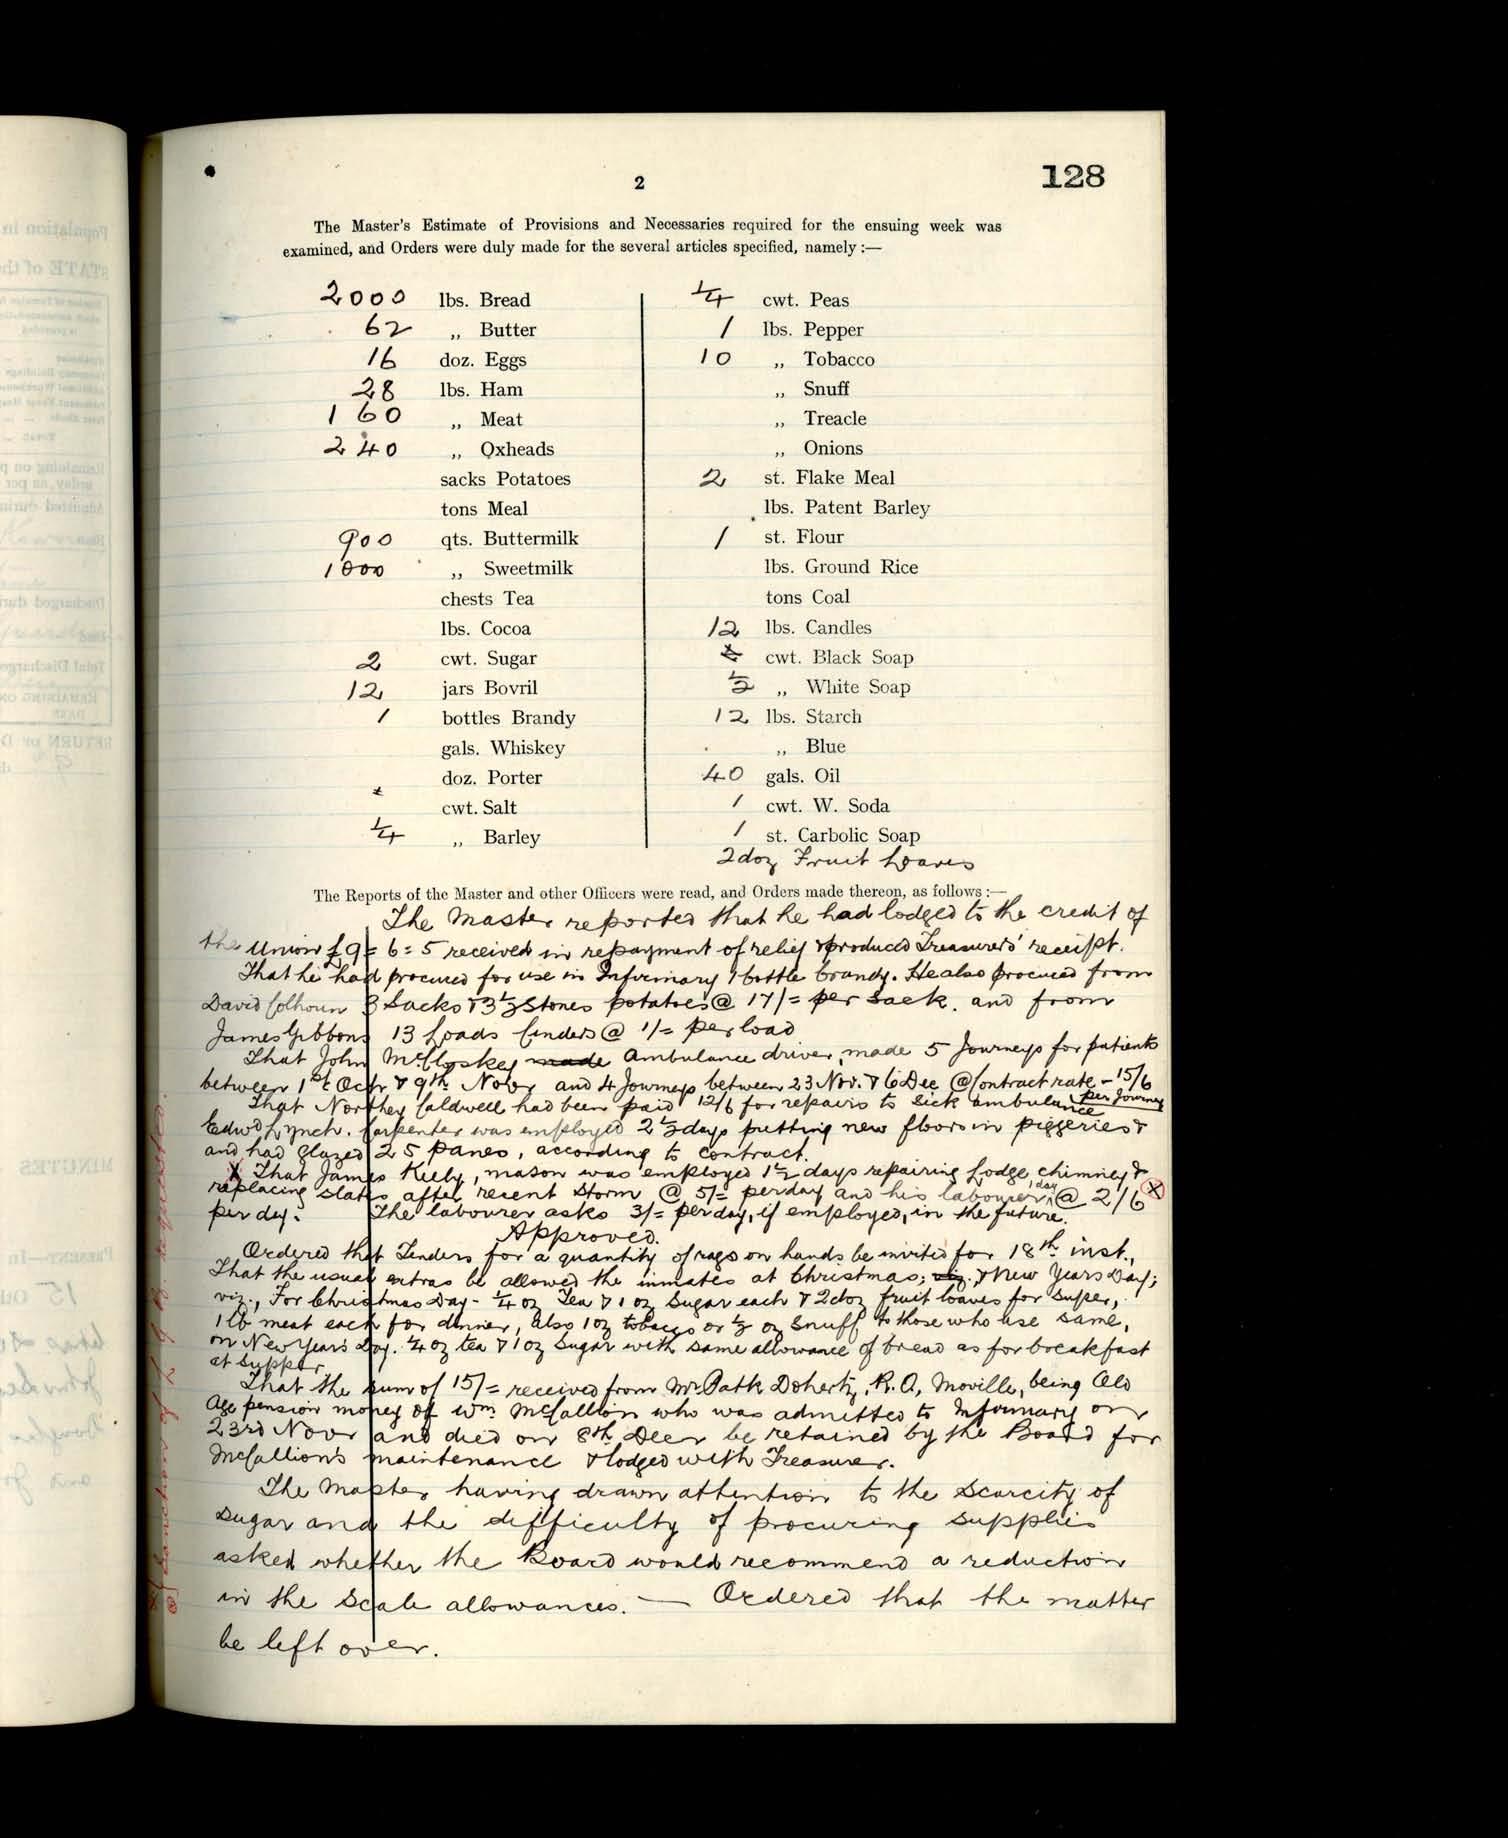 2
128
The Master's Estimate of Provisions and Necessaries required for the ensuing week was
examined, and Orders were duly made for the several articles specified, namely :—
2000 lbs. Bread
62 ,, Butter
16 doz. Eggs
28 lbs. Ham
160 ,, Meat
240 ,, Oxheads
sacks Potatoes
tons Meal
900 qts. Buttermilk
1000 ,, Sweetmilk
chests Tea
lbs. Cocoa
2 cwt. Sugar
12 jars Bovril
1 bottles Brandy
gals. Whiskey
doz. Porter
cwt. Salt
¼ ,, Barley
¼ cwt. Peas
1 lbs. Pepper
10 ,, Tobacco
,, Snuff
,, Treacle
,, Onions
2 st. Flake Meal
lbs. Patent Barley
1 st. Flour
lbs. Ground Rice
tons Coal
12 lbs. Candles
cwt. Black Soap
½ ,, White Soap
12 lbs. Starch
,, Blue
40 gals. Oil
1 cwt. W. Soda
1 st. Carbolic Soap
2 doz Fruit Loaves
The Reports of the Master and other Officers were read, and Orders made thereon, as follows :—
The Master reported that he had lodged to the credit of
the Union £9=6=5 received in repayment of relief & produced Treasurers' receipt.
That he had procured for use in Infirmary 1 bottle brandy. He also procured from
David Colhoun 3 Sacks & 3½ Stones potatoes @ 17/= per sack. and from
James Gibbons 13 Loads Cinders @ 1/= per load
That John McCloskey made Ambulance driver, made 5 Journeys for patients
between 1st Octr & 9th Novr and 4 Journeys between 23 Nov. & 6 Dec @ Contract rate - 15/6
per Journey
That Northey Caldwell had been paid 12/6 for repairs to sick ambulance
Edwd Lynch. Carpenter was employed 2½ days putting new floors in piggeries &
and had glazed 25 panes, according to contract.
X That James Kielly, mason was employed 1½ days repairing Lodge, chimney &
replacing slates after recent storm @ 5/= per day and his labourer day @ 2/6 X
per day. The labourer asks 3/= per day, if employed, in the future.
Approved.
Ordered that Tenders for a quantity of rags on hands be invited for 18th inst.,
That the usual extras be allowed the inmates at Christmas; viz., & New Years Day;
viz., For Christmas Day - ¼ oz Tea & 1 oz Sugar each & 2 doz fruit loaves for Super,
1 lb meat each for dinner, also 1 oz tobacco or ½ oz Snuff to those who use same,
on New Year's Day. ¼ oz tea & 1 oz Sugar with same allowance of bread as for breakfast
at Supper
That the sum of 15/= received from Mr Patk Doherty, R.O, Moville, being Old
Age pension money of Wm McCallion who was admitted to Infirmary on
23rd Novr and died on 8th Decr be retained by the Board for
McCallion's maintenance & lodged with Treasurer.
The Master having drawn attention to the Scarcity of
sugar and the difficulty of procuring supplies
asked whether the Board would recommend a reduction
in the scale allowances. — Ordered that the matter
be left over.
Sanction of L G B requested.